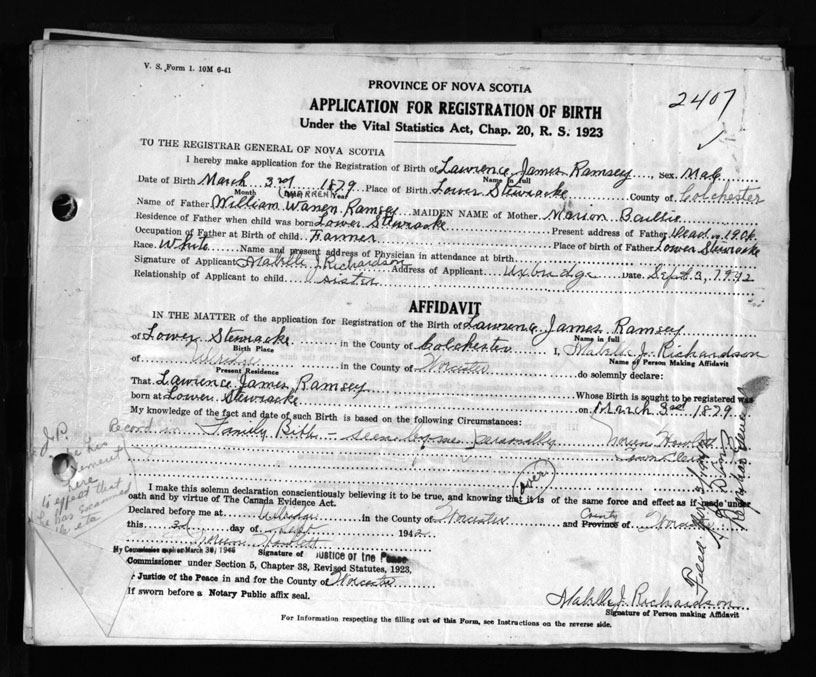 V. S. Form 1. 10M 6-41
PROVINCE OF NOVA SCOTIA
2407
APPLICATION FOR REGISTRATION OF BIRTH
Under the Vital Statistics Act, Chap. 20, R. S. 1923
TO THE REGISTRAR GENERAL OF NOVA SCOTIA
I hereby make application for the Registration of Birth of Lawrence James Ramsey Sex Male
Name in full
Date of Birth March 3rd 1879 Place of Birth Lower Stewiacke County of Colchester
Month (WARREN) Year
Name of Father William Warren Ramsey MAIDEN NAME of Mother Marion Baillie
Residence of Father when child was born Lower Stewiacke Present address of Father Dead
Occupation of Father at Birth of child Farmer Place of birth of Father Lower Stewiacke
Race White Name and present address of Physician in attendance at birth
Signature of Applicant Mabelle J. Richardson Address of Applicant Uxbridge Date Sept. 3, 1942
Relationship of Applicant to child sister
AFFIDAVIT
IN THE MATTER of the application for Registration of the Birth of Lawrence James Ramsey
Name in full
of Lower Stewiacke in the County of Colchester I, Mabelle J. Richardson
Birth Place Name of Person Making Affidavit
of Uxbridge in the County of Worcester do solemnly declare:
Present Residence
That Lawrence James Ramsey Whose Birth is sought to be registered was
born at Lower Stewiacke on March 3rd 1879
My knowledge of the fact and date of such Birth is based on the following Circumstances:
Record in Family Bible - seen by me personally
Town Clerk
J.P.
his
here
to effect that
he has examined
(over)
I make this solemn declaration conscientiously believing it to be true, and knowing that it is of the same force and effect as if made under
oath and by virtue of The Canada Evidence Act.
Declared before me at Uxbridge in the County of Worcester and County Province of Worcester
this 3d day of Sept 1942
My Commission expires March 30, 1946 Signature of Justice of the Peace
Commissioner under Section 5, Chapter 38, Revised Statutes, 1923,
r Justice of the Peace in and for the County of Worcester
If sworn before a Notary Public affix seal.
Mabelle J. Richardson
Signature of Person making Affidavit
For Information respecting the filling out of this Form, see Instructions on the reverse side.